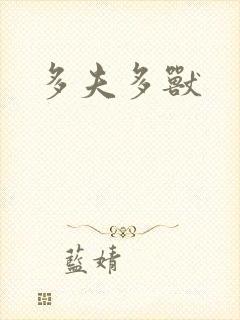 多夫多獸
藍婧